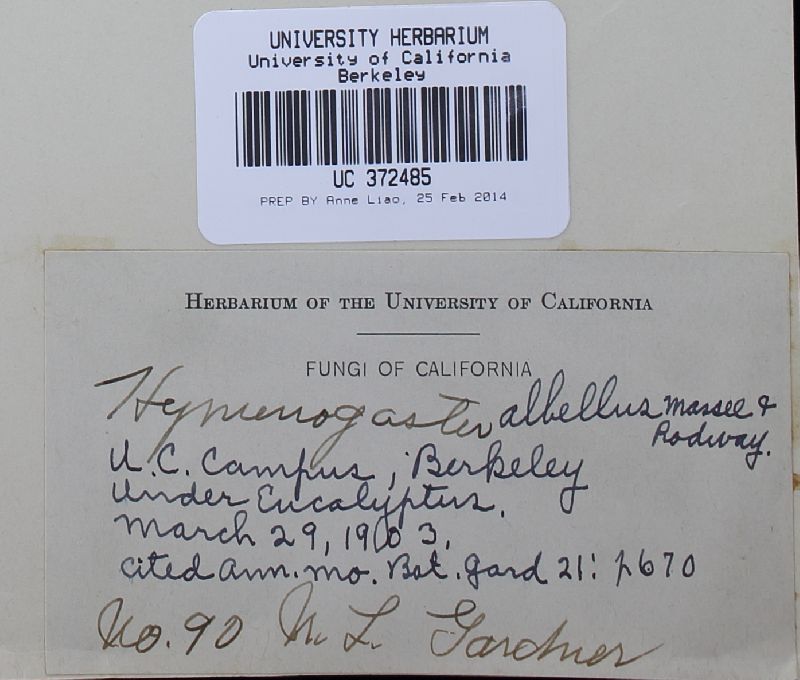 UNIVERSITY HERBARIUM
University of California
Berkeley
UC 372485
PREP BY Anne Liao, 25 Feb 2014
HERBARIUM OF THE UNIVERSITY OF CALIFORNIA
FUNGI OF CALIFORNIA
Hymenogaster albellus Massee &
Rodway.
U.C. Campus, Berkeley
Under Eucalyptus.
March 29, 1903.
cited Ann. Mo. Bot. Gard 21: p670
No. 90 N. L. Gardner